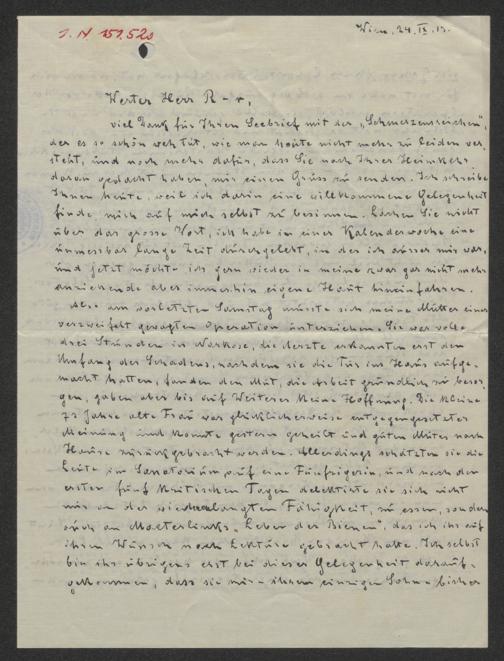 J. N 151.520
Wien, 24. IX. 13.
Werter Herr R-r,
viel Dank für Ihren Seebrief mit der „Schmerzensreichen",
der es so schön weh tut, wie man heute nicht mehr zu leiden ver-
steht, und noch mehr dafür, dass Sie nach Ihrer Heimkehr
daran gedacht haben, mir einen Gruss zu senden. Ich schreibe
Ihnen heute, weil ich darin eine willkommene Gelegenheit
finde, mich auf mich selbst zu besinnen. Lachen Sie nicht
über das grosse Wort, ich habe in einer Kalenderwoche eine
unmessbar lange Zeit durchgelebt, in der ich ausser mir war,
und jetzt möchte ich gern wieder in meine zwar gar nicht mehr
anziehende aber immerhin eigene Haut hineinfahren.
Also am vorletzten Samstag musste sich meine Mutter einer
verzweifelt gewagten Operation unterziehen. Sie war volle
drei Stunden in Narkose, die Ärzte erkannten erst den
Umfang des Schadens, nachdem sie die Tür ins Haus aufge-
macht hatten, fanden den Mut, die Arbeit gründlich zu besor-
gen, gaben aber bis auf Weiteres keine Hoffnung. Die kleine
73 Jahre alte Frau war glücklicherweise entgegengesetzter
Meinung und konnte gestern geheilt und guten Mutes nach
Hause zurückgebracht werden. Allerdings schätzten sie die
Leute im Sanatorium auf eine Fünfzigerin, und nach den
ersten fünf kritischen Tagen delektierte sie sich nicht
nur an der wiedererlangten Fähigkeit, zu essen, sondern
auch an Maeterlincks „Leben der Bienen", das ich ihr auf
ihren Wunsch nach Lektüre gebracht hatte. Ich selbst
bin ihr übrigens erst bei dieser Gelegenheit darauf-
gekommen, dass sie mir – ihrem einzigen Sohne bisher